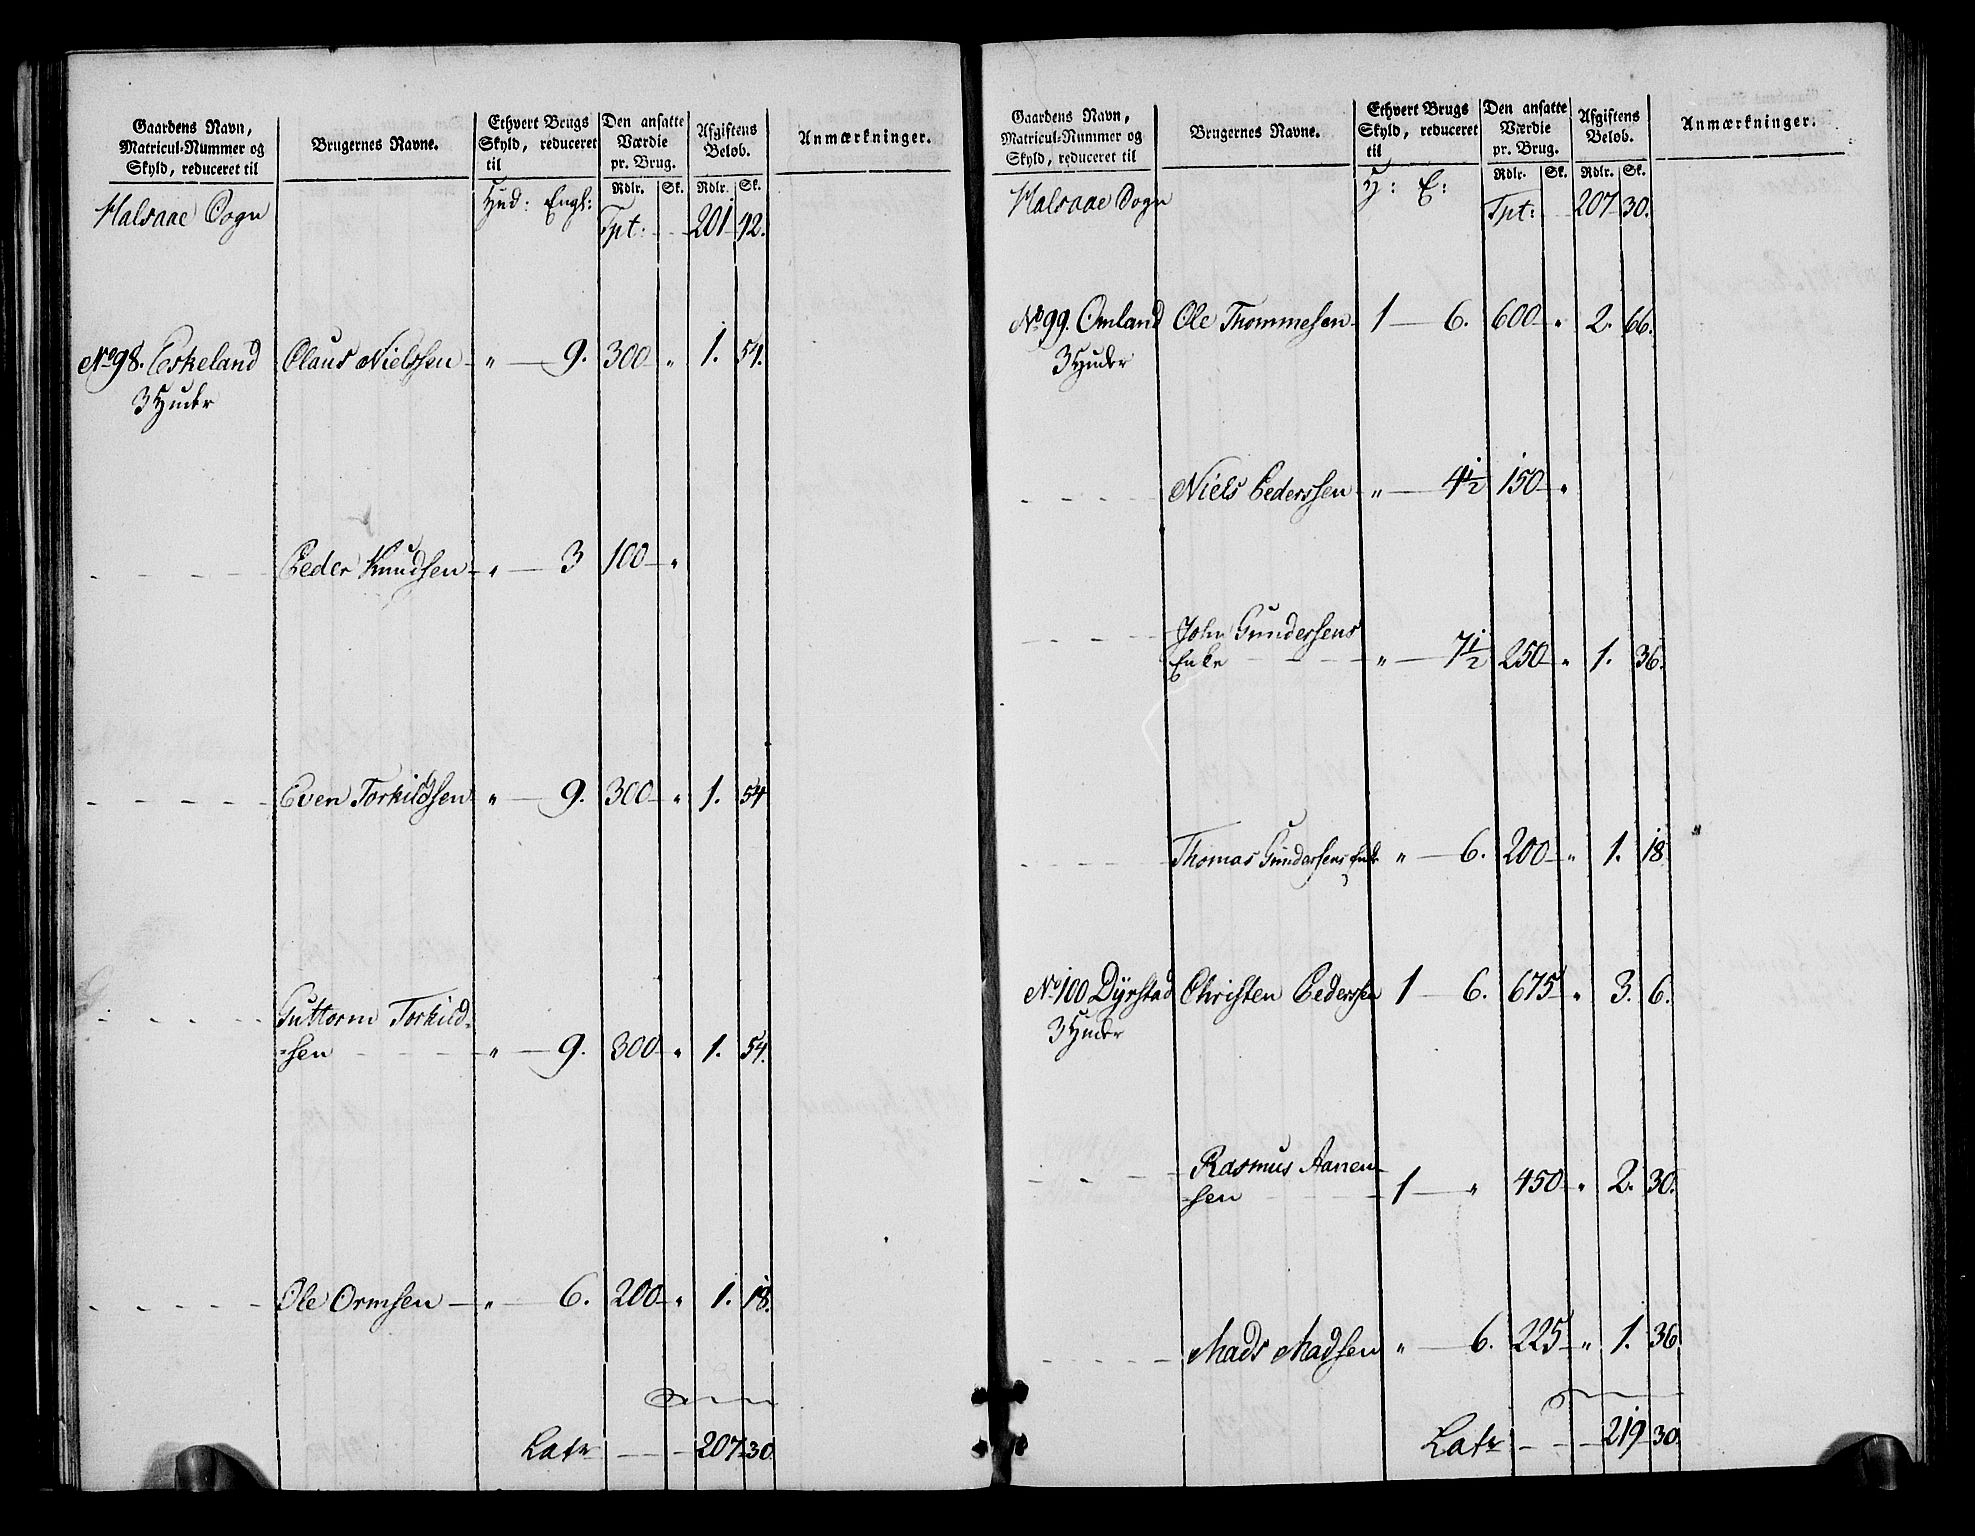 Gaardens Navn,
Matricul-Nummer og
Skyld, reduceret til
Brugernes Navne.
Ethvert Brugs
Skyld, reduceret
til
Den ansatte
Værdie
pr. Brug.
Afgiftens
Belob.
Anmærkninger.
Rdlr. Sk. Rdlr. Sk.
Halsaae Sogn Hud: Engl: Tpt: 201 42.
No 98. Eskeland Claus Nielssen " 9. 300 " 1. 54.
3 Huder
Peder Knudsen " 3 100 "
Even Torkildsen " 9. 300 " 1. 54
Guttorm Torkild-
-sen " 9. 300 " 1. 54.
Ole Ormsen " 6. 200 " 1. 18.
Latr 207 30
Gaardens Navn,
Matricul-Nummer og
Skyld, reduceret til
Brugernes Navne.
Ethvert Brugs
Skyld, reduceret
til
Den ansatte
Værdie
pr. Brug.
Afgiftens
Belob.
Anmærkninger.
Rdlr. Sk. Rdlr. Sk.
Halsaae Sogn H: E: Tpt: 207 30.
No 99. Omland Ole Thommesen 1 6. 600 " 2. 66.
3 Huder
Niels Pederssen " 4 1/2 150 "
John Gundersens
Enke " 7 1/2 250 " 1. 36.
Thomas Gundersens Enke " 6. 200 " 1. 18.
No 100 Dyrstad Christen Pederssen 1 6. 675 " 3. 6.
3 Huder
Rasmus Aanen-
-sen 1 " 450 " 2. 30.
Mads Madsen " 6. 225 " 1. 36
Latr 219 30.